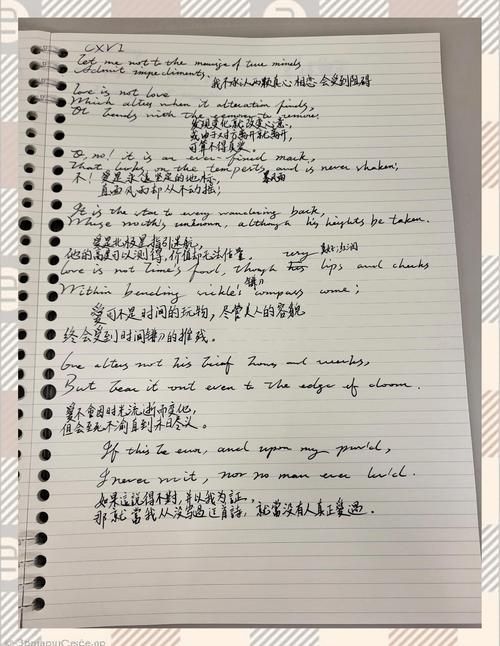 CXVI
Let me not to the marriage of true minds
Admit impediments.
我不承认两颗真心相恋会受到阻碍
love is not love
Which alters when it alteration finds,
Or bends with the remover to remove:
发现变化就改变心意,
或由于对方离开就离开,
可算不得真爱。
O, no! it is an ever-fixed mark,
That looks on the tempests and is never shaken;
不!爱是永远坚定的地标,
暴风雨
直面风雨却从不动摇;
It is the star to every wandering bark,
Whose worth's unknown, although his height be taken.
爱是北极星指引迷航,
他的高度可以测得,价值却无法估量。
love is not Time's fool, though rosy lips and cheeks
镰刀
Within bending sickle's compass come;
爱可不是时间的玩物,尽管美人的容貌
终会受到时间镰刀的摧残。
love alters not his brief hours and weeks,
But bear it out even to the edge of doom.
爱不会因时光流逝而变化,
但会至死不渝直到末日尽头。
If this be error, and upon my prov'd,
I never writ, nor no man ever lov'd.
如果這說得不對,并以我为証,
那就當我从没写過这首詩,就當沒有人真正愛過.